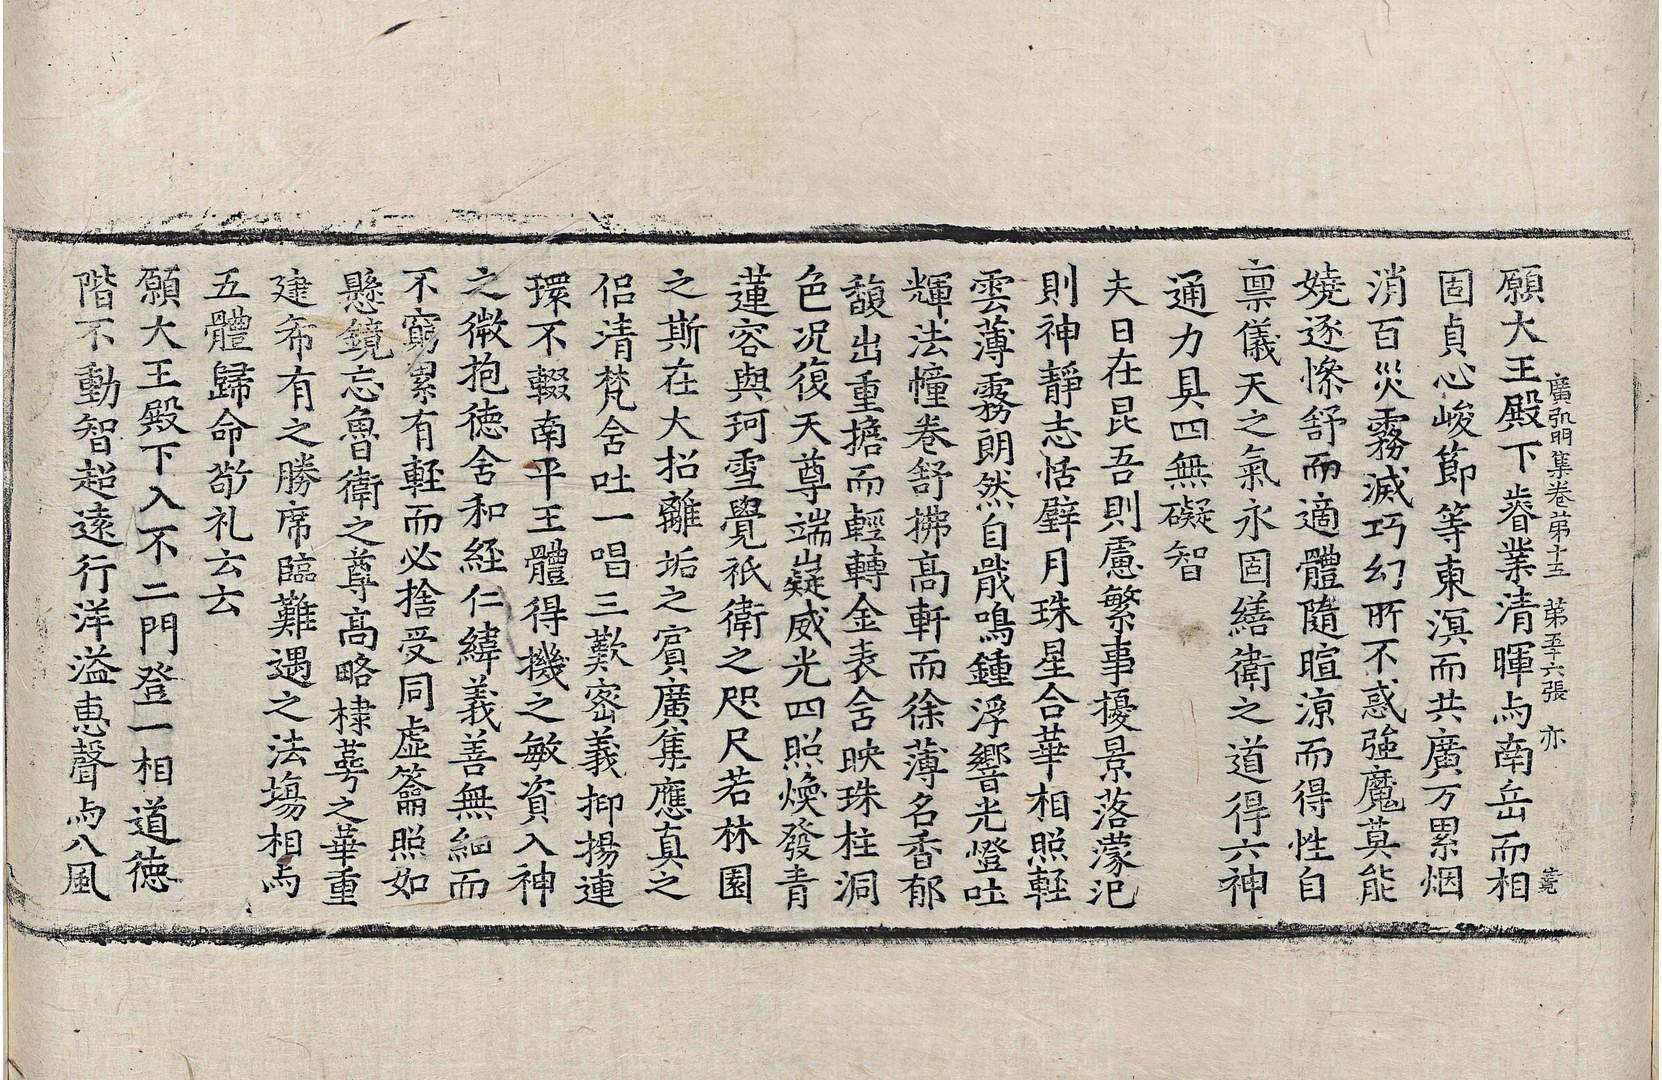 廣弘明集卷第十五 第五十六張 亦
願大王殿下睿業清暉与南岳而相
固貞心峻節等東溟而共廣万累烟
消百災霧滅巧幻所不惑強魔莫能
嬈逐慘舒而適體隨暄涼而得性自
禀儀天之氣永固繕衛之道得六神
通力具四無礙智
夫日在昆吾則慮繁事擾景落濛汜
則神靜志恬璧月珠星合華相照輕
雲薄霧朗然自戢鳴鍾浮響光燈吐
輝法幢卷舒拂高軒而徐薄名香郁
馥出重擔而輕轉金表含映珠柱洞
色況復天尊端嶷威光四照煥發青
蓮容與珂雪覺祇衛之咫尺若林園
之斯在大招離垢之賓廣集應真之
侶清梵含吐一唱三歎密義抑揚連
環不輟南平王體得機之敏資入神
之微抱德含和經仁緯義善無細而
不窮累有輕而必捨受同虛籥照如
懸鏡忘魯衛之尊高略棣萼之華重
建希有之勝席臨難遇之法塲相与
五體歸命𦬇礼云云
願大王殿下入不二門登一相道德
階不動智超遠行洋溢惠聲与八風